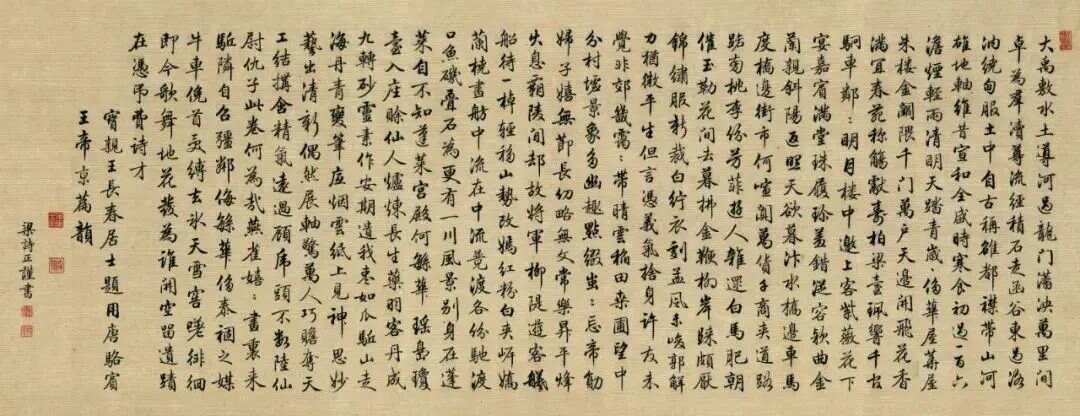 大禹敷水土導河過龍門滿泱萬里間
卓為羣瀆尊流經積石走函谷東過洛
汭繞甸服土中自古稱雒都襟帶山河
雄地軸維昔宣和全盛時寒食初過一百六
澹煙輕雨清明天踏青歲〻侈華屋蔀屋
朱樓金闕隈千門萬户天邊開飛花香
滿宜春苑稱觴獻壽柏梁臺珮響千官
駉車鄰〻明月樓中邀上客紫薇花下
宴嘉賓滿堂珠履珍羞錯從容歌曲金
蘭親斜陽返照天欲暮汴水橋邊車馬
度橋邊街市何喧闐萬貨子商夾道路
南桃李份芳菲遊人雜還白馬肥朝
催玉勒花間去暮拂金鞭柳岸歸頗厭
錦繡服新裁白紵衣劇孟風未峻郭解
力猶微平生但言憑義氣捨身許友未
覺非郊畿靄〻帶晴雲稲田桑圃望中
分村墟景象多幽趣點綴蚩〻忘帝勛
婦子嬉無節長幼略無文常樂昇平烽
火息霸陵間却故將軍柳隄遊客艤
船待一棹輕移山勢改嫣紅粉白夾岍嬌
蘭橈畫舫中流在中流竟渡各份馳渡
口魚磯疊石為更有一川風景別身在蓬
萊自不知蓬萊宮殿何緐華瑤島瓊
臺入座賒仙人爐煉長生藥羽客丹成
九轉砂靈素作安期遺我枣如瓜駈山走
海丹青筆底烟雲紙上見神思妙
藝出清新偶然展軸驚萬人巧贍奪天
工結搆含精氣遠過顧虎頭不數陸仙
尉仇子此卷何為哉燕雀嬉〻畫裏来
駈隣自召疆鄰侮緐華侈泰禍之媒
牛車俛首爰縛去氷天雪窖嗟徘徊
即今歌舞地花發為誰開空留遺蹟
在憑弔費詩才
寶親王長春居士題用唐駱賓
王帝京篇韻
梁詩正謹書